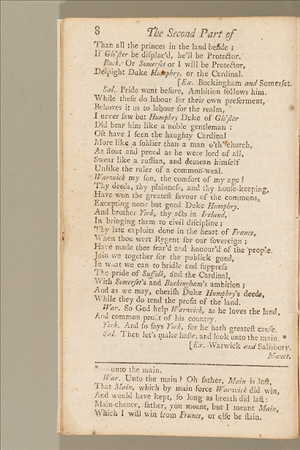 8 The Second Part of
Than all the princes in the land beside;
If Glo'ster be displac'd, he'll be Protector.
Buck. Or Somerset or I will be Protector,
Despight Duke Humphry, or the Cardinal.
[Ex. Buckingham and Somerset.
Sal. Pride went before, Ambition follows him.
While these do labour for their own preferment,
Behoves it us to labour for the realm,
I never saw but Humphry Duke of Glo'ster
Did bear him like a noble gentleman:
Oft have I seen the haughty Cardinal
More like a soldier than a man o'th' church,
As stout and proud as he were lord of all,
Swear like a ruffian, and demean himself
Unlike the ruler of a common-weal.
Warwick my son, the comfort of my age!
Thy deeds, thy plainness, and thy house-keeping,
Have won the greatest favour of the commons,
Excepting none but good Duke Humphry.
And brother York, thy acts in Ireland,
In bringing them to civil discipline;
Thy late exploits done in the heart of France,
When thou wert Regent for our sovereign;
Have made thee fear'd and honour'd of the people.
Join we together for the publick good,
In what we can to bridle and suppress
The pride of Suffolk, and the Cardinal,
With Somerset's and Buckingham's ambition;
And as we may, cherish Duke Humphry's deeds,
While they do tend the profit of the land.
War. So God help Warwick, as he loves the land,
And common profit of his country.
York. And so says York, for he hath greatest cause.
Sal. Then let's make haste, and look unto the main. *
[Ex. Warwick and Salisbury.
Manet.
* —unto the main.
War. Unto the main! Oh father, Main is lost,
That Main, which by main force Warwick did win,
And would have kept, so long as breath did last:
Main-chance, father, you meant, but I meant Main,
Which I will win from France, or else be slain.